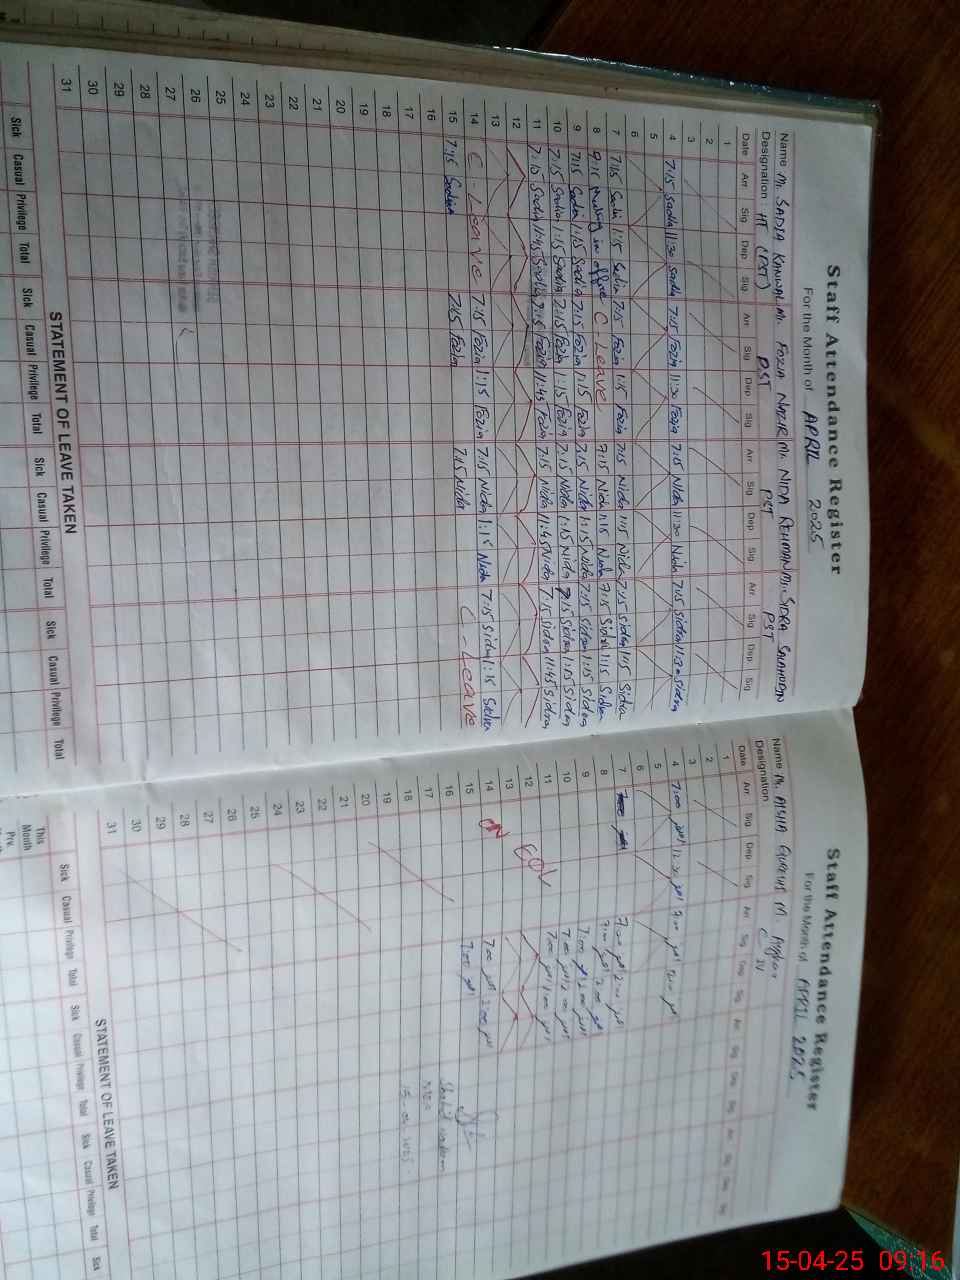 Staff Attendance Register
For the Month of APRIL 2025
Name Mr. SADIA KANWAL Mr. FOZIA NAZIR Mr. NIDA REHMAN Mr. SIDRA SALAHUDIN
Designation : HT (PST) PST PST PST
Date Arr Sig Dep Sig Arr Sig Dep Sig Arr Sig Dep Sig Arr Sig Dep Sig
1
2
3
4 7:15 Sadia 11:30 Sadia 7:15 Fozia 11:30 Fozia 7:15 Nida 11:30 Nida 7:15 Sidra 11:30 Sidra
5
6
7 7:15 Sadia 1:15 Sadia 7:15 Fozia 1:15 Fozia 7:15 Nida 1:15 Nida 7:15 Sidra 1:15 Sidra
8 9:15 Meeting in office C Leave 7:15 Nida 1:15 Nida 7:15 Sidra 1:15 Sidra
9 7:15 Sadia 1:15 Sadia 7:15 Fozia 1:15 Fozia 7:15 Nida 1:15 Nida 7:15 Sidra 1:15 Sidra
10 7:15 Sadia 1:15 Sadia 7:15 Fozia 1:15 Fozia 7:15 Nida 1:15 Nida 7:15 Sidra 1:15 Sidra
11 7:15 Sadia 11:45 Sadia 7:15 Fozia 11:45 Fozia 7:15 Nida 11:45 Nida 7:15 Sidra 11:45 Sidra
12
13
14 C - Leave 7:15 Fozia 1:15 Fozia 7:15 Nida 1:15 Nida 7:15 Sidra 1:15 Sidra
15 7:15 Sadia 7:15 Fozia 7:15 Nida C - Leave
16
17
18
19
20
21
22
23
24
25
26
27
28
29
30
31
STATEMENT OF LEAVE TAKEN
Sick Casual Privilege Total Sick Casual Privilege Total Sick Casual Privilege Total Sick Casual Privilege Total
Staff Attendance Register
For the Month of APRIL 2025
Name Mr. AISHA
Designation IV
Date Arr Sig Dep Sig Arr Sig Dep Sig Arr Sig Dep Sig Arr Sig Dep Sig
1
2
3
4 7:00 12:00 7:00
5
6
7 7:00 2:00
8 7:00 2:00
9 7:00 2:00
10 7:00 2:00
11 7:00
12
13
14 7:00 2:00
15 7:00
16
17
18
19
20
21
22
23
24
25
26
27
28
29
30
31
STATEMENT OF LEAVE TAKEN
Sick Casual Privilege Total Sick Casual Privilege Total Sick Casual Privilege Total Sick
This Month
Prv.
15-04-25 09:16